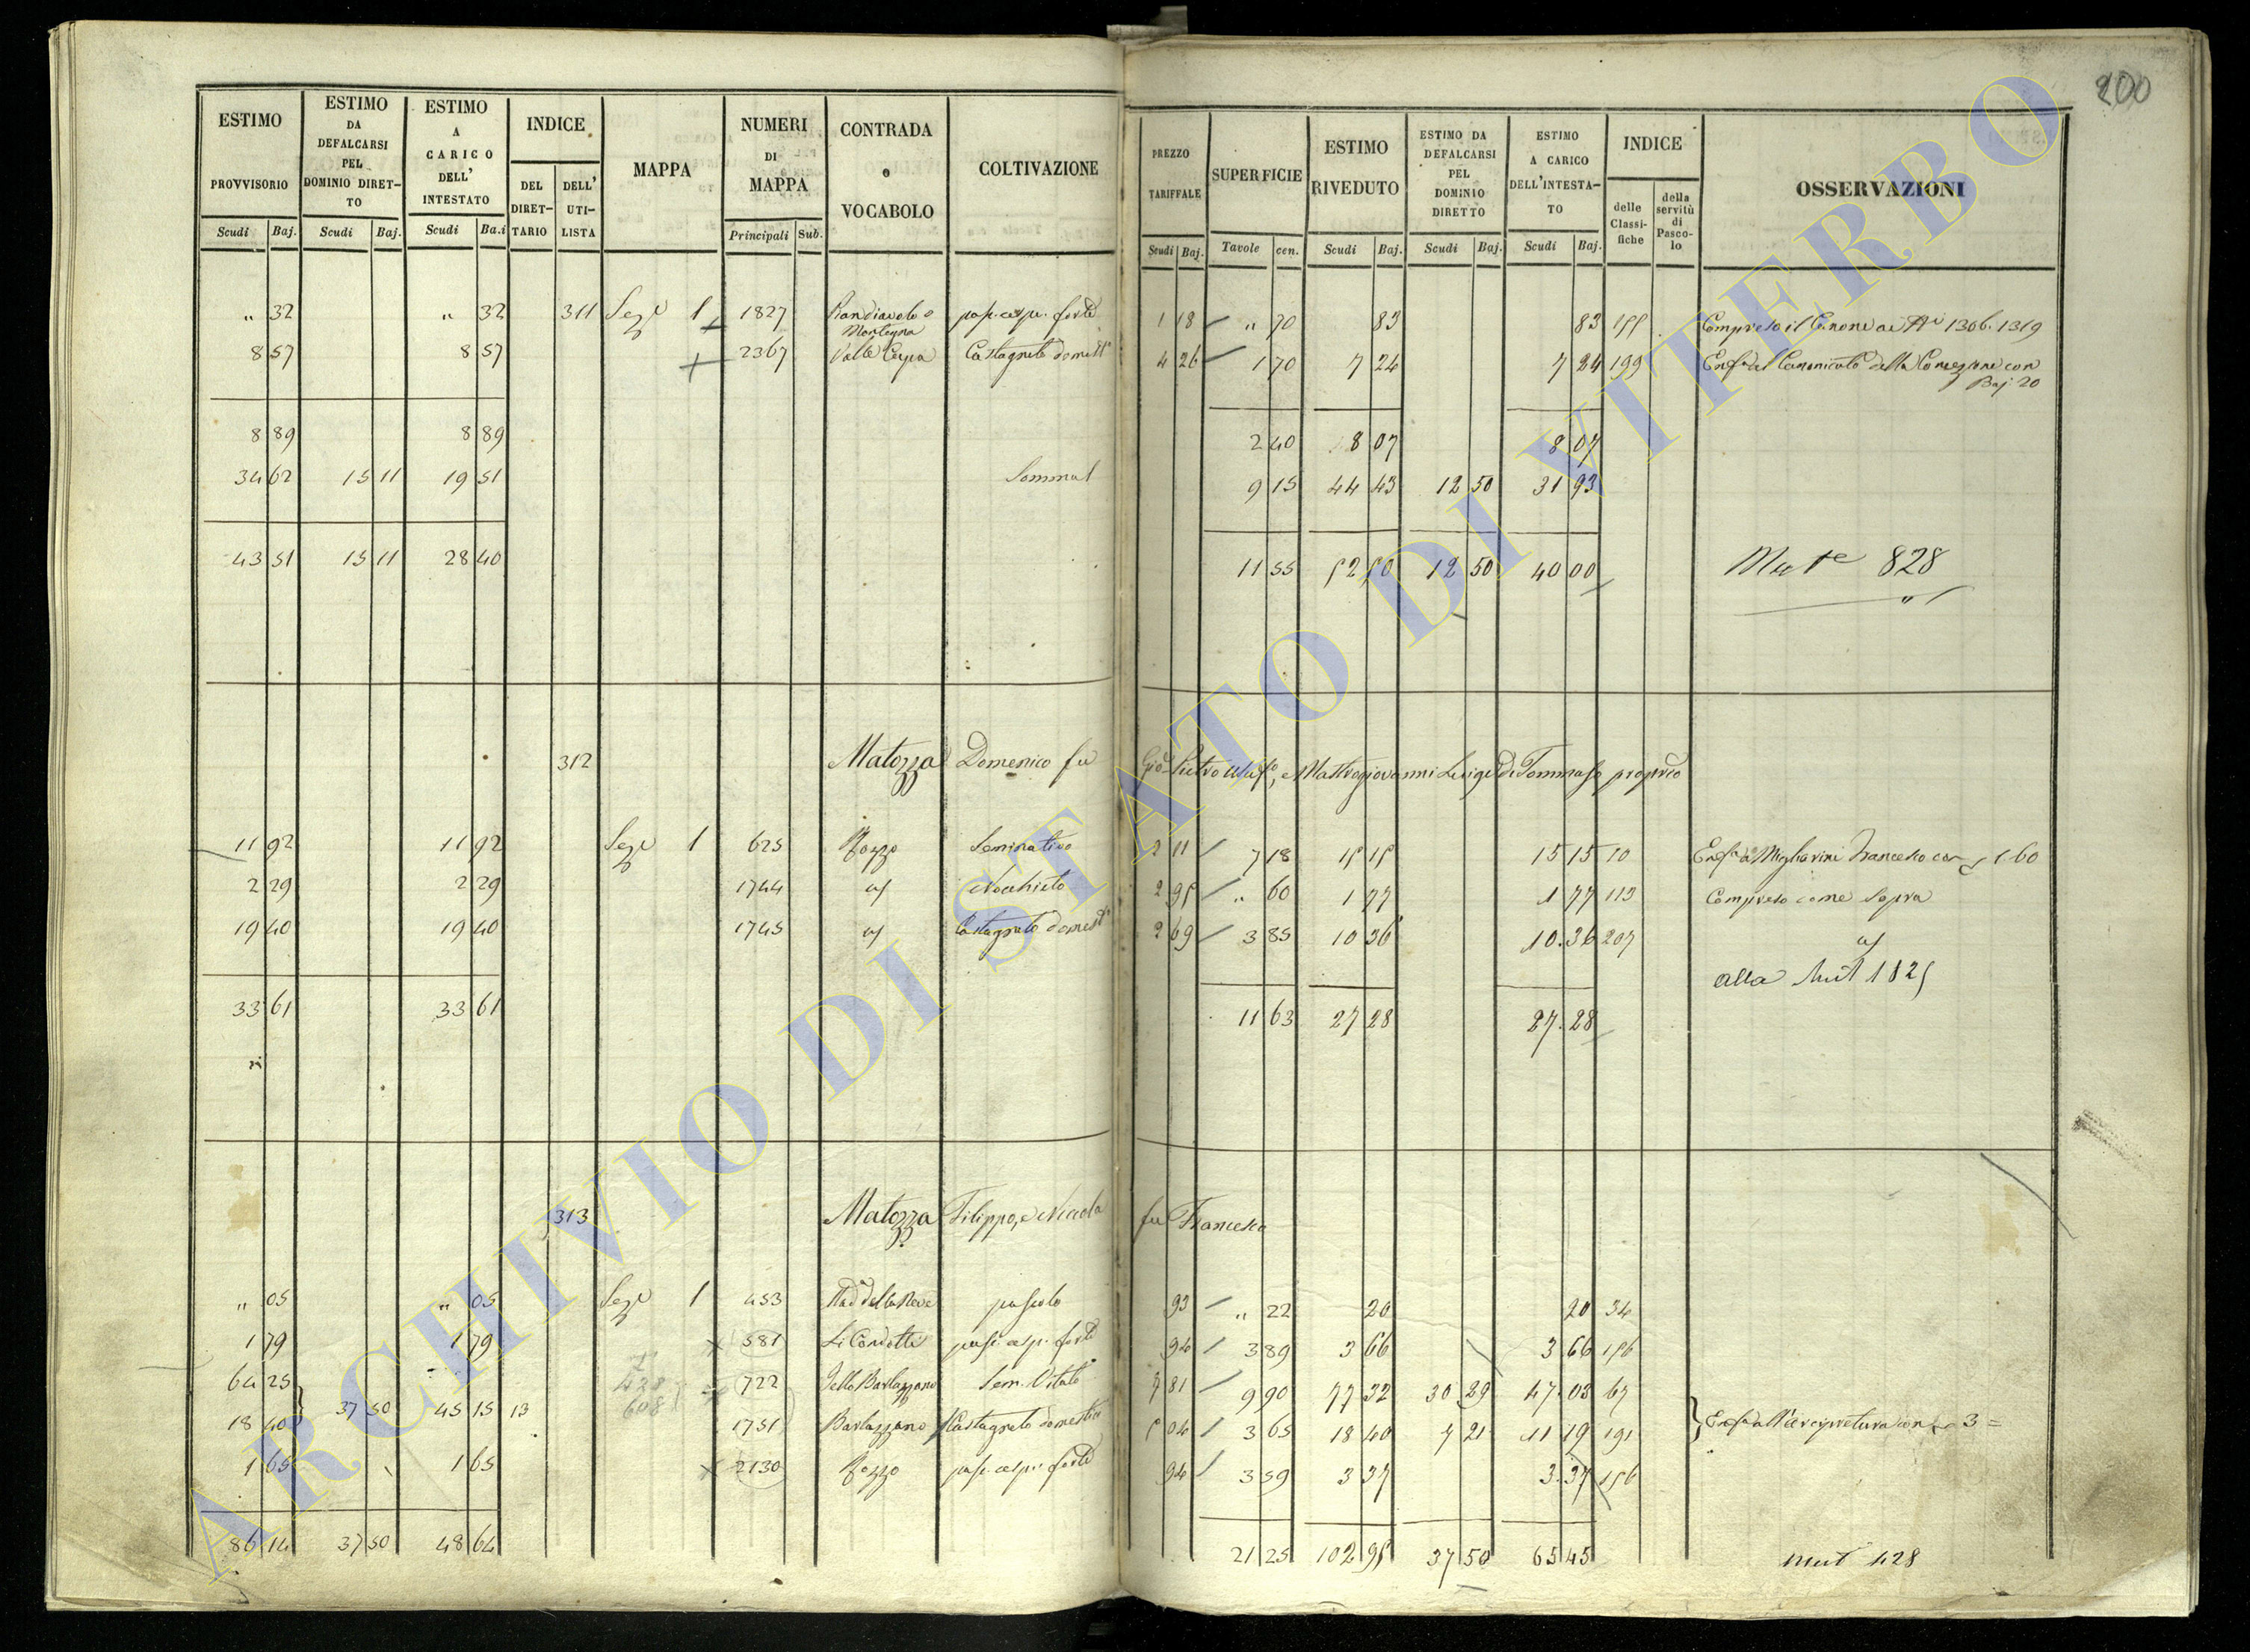 200
ESTIMO PROVVISORIO Scudi Baj. ESTIMO DA DEFALCARSI PEL DOMINIO DIRET-TO Scudi Baj. ESTIMO A CARICO DELL' INTESTATO Scudi Ba.i INDICE DEL DIRET-TARIO DELL' UTI-LISTA MAPPA NUMERI DI MAPPA Principali Sub. CONTRADA o VOCABOLO COLTIVAZIONE
PREZZO TARIFFALE Scudi Baj. SUPERFICIE Tavole cen. ESTIMO RIVEDUTO Scudi Baj. ESTIMO DA DEFALCARSI PEL DOMINIO DIRETTO Scudi Baj. ESTIMO A CARICO DELL'INTESTA-TO Scudi Baj. INDICE delle Classi-fiche della servitù di Pasco-lo OSSERVAZIONI
" 32 " 32 311 Seze 1 1827 pas. cesp. forte 1 18 " 70 83 83 155 Compreso il Canone ai Ni 1306. 1319
Montagna
8 57 8 57 2367 Valle Castagneto domest 4 26 1 70 7 24 7 24 199 Enfa del Canonicato della Concezione con
Baj: 20
8 89 8 89 2 40 8 07 8 07
34 62 15 11 19 51 Somma 9 15 44 43 12 50 31 93
43 51 15 11 28 40 11 55 52 50 12 50 40 00 828
312 Matozza Domenico fu Gio Pietro Mastrogiovanni Luigi di Tommaso proprio
11 92 11 92 Seze 1 625 Pozzo Seminativo 2 11 7 18 15 15 15 15 10 Enfa a Migliarini Francesco con 1 60
2 29 2 29 1744 Nocchieto 2 95 " 60 1 77 1 77 113 Compreso come Sopra
19 40 19 40 1745 Castagneto domest 2 69 3 85 10 36 10 36 207
alla Mut 1825
33 61 33 61 11 63 27 28 27 28
313 Matozza Filippo, e Nicola fu Francesco
" 05 " 05 Seze 1 453 Mad della Neve pascolo 93 " 22 20 20 34
1 79 1 79 581 Li Condotti pas. cesp. forte 94 3 89 3 66 3 66 156
64 25 722 Barlazzano Sem. Vitato 7 81 9 90 77 32 30 29 47 03 67
428
608
18 40 37 50 45 15 13 1751 Barlazzano Castagneto domestico 5 04 3 65 18 40 7 21 11 19 191 Enfa all'Arcipretura con 3 =
1 65 1 65 2130 Pozzo pas. cesp. forte 94 3 59 3 37 3 37 156
86 14 37 50 48 64 21 25 102 95 37 50 65 45 Mut 428
ARCHIVIO DI STATO DI VITERBO